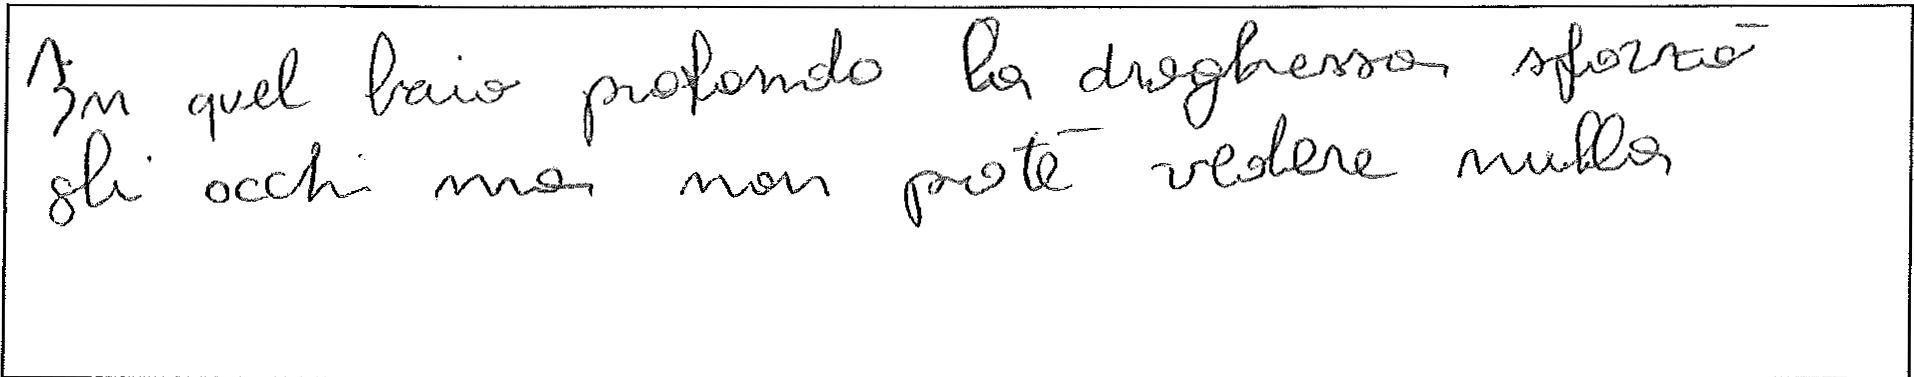 In quel baio profondo la draghessa sforzò
gli occhi ma non potè vedere nulla